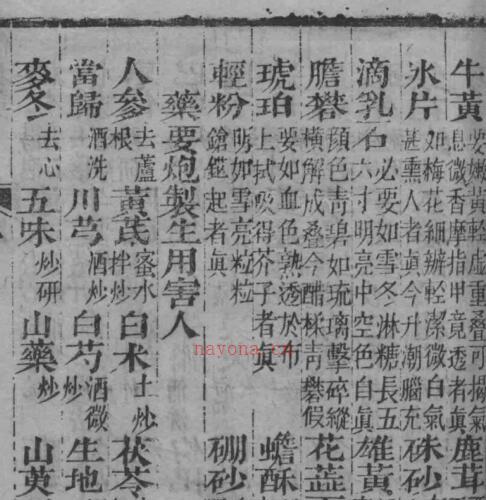 牛黃 要嫩黃輕虛重叠可揭氣息微香摩指甲竟透者眞 鹿茸
氷片 如梅花細瓣輕潔微白氣甚熏人者眞今升潮腦充 硃砂
滴乳石 必要如雪冬淋糖長五六寸明亮中空色自眞 雄黃
膽礬 顏色靑碧如琉璃擊碎縱橫解成叠今醋楺靑礬假 花蕋
琥珀 要如血色熟透於布上拭吸得芥子者眞 蟾酥
輕粉 明如雪亮粒粒鎗鋌起者眞 硼砂
藥要炮製生用害人
人參 去蘆根 黃芪 蜜水拌炒 白朮 土炒 茯苓
當歸 酒洗 川芎 酒炒 白芍 酒微炒 生地
麥冬 去心 五味 炒研 山藥 炒 山萸
navona.cn